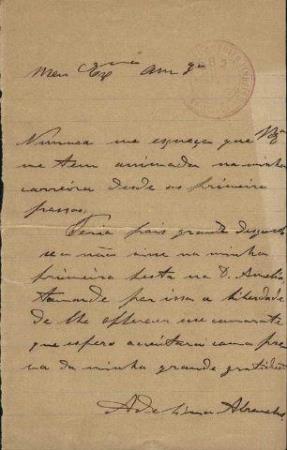 Meu Exmo Amgo
Nunnca me esqueço que VEx
me tem animada na minha
carreira desde os primeiro
passos.
Teria pois grande desgosto
se o não visse na minha
primeira festa no D. Amelia
tomando por isso a liberdade
de lhe offerecer um camarote
que espero aceitara como pro
va da minha grande gratidão
Adelina Abranches